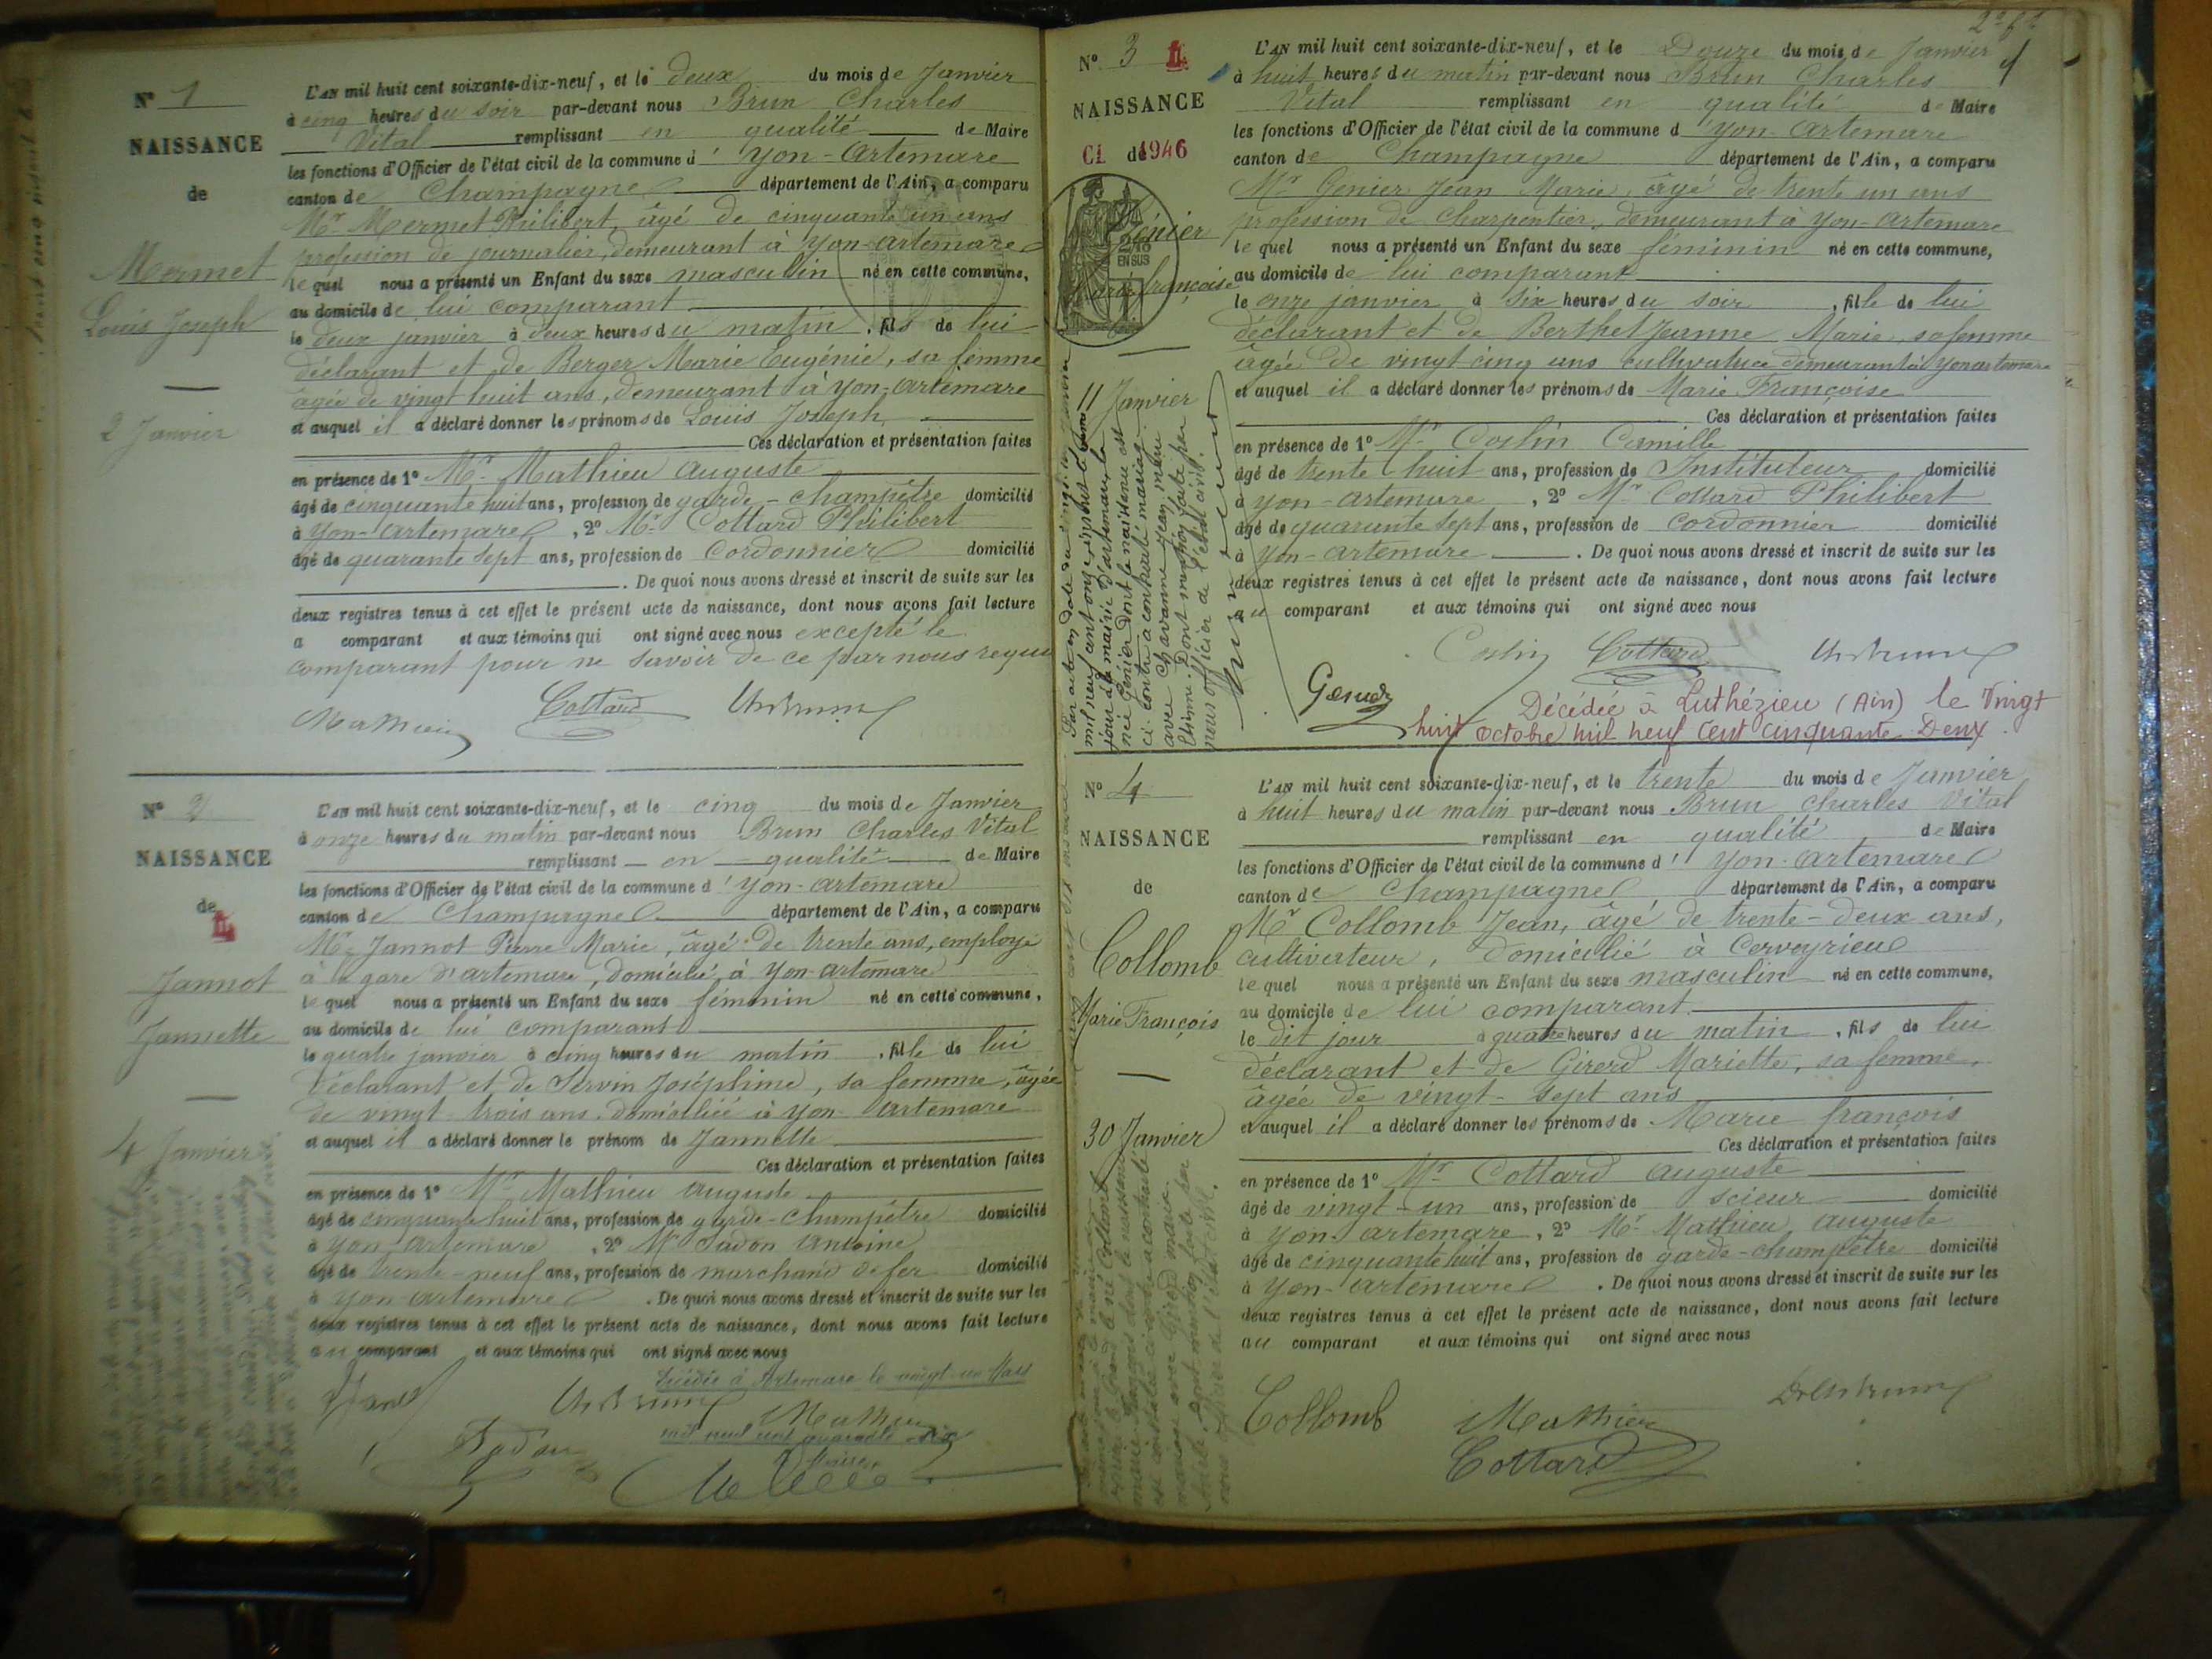 N° 1
NAISSANCE
de
Mermet
Louis Joseph
2 Janvier
L'AN mil huit cent soixante-dix-neuf, et le deux du mois de Janvier
à cinq heures du soir par-devant nous Brun Charles
Vital remplissant en qualité de Maire
les fonctions d'Officier de l'état civil de la commune d'Yon-Artemare
canton de Champagne département de l'Ain, a comparu
Mr Mermet Philibert, âgé de cinquante un ans
profession de journalier, demeurant à Yon-artemare
lequel nous a présenté un Enfant du sexe masculin né en cette commune,
au domicile de lui comparant
le deux janvier à deux heures du matin, fils de lui
déclarant et de Berger Marie Eugénie, sa femme
agée de vingt huit ans, demeurant à Yon-artemare
et auquel il a déclaré donner les prénoms de Louis Joseph
Ces déclaration et présentation faites
en présence de 1° Mr Mathieu Auguste
âgé de cinquante huit ans, profession de garde-champêtre domicilié
à Yon-artemare, 2° Mr Cottard Philibert
âgé de quarante sept ans, profession de Cordonnier domicilié
. De quoi nous avons dressé et inscrit de suite sur les
deux registres tenus à cet effet le présent acte de naissance, dont nous avons fait lecture
a comparant et aux témoins qui ont signé avec nous excepté le
comparant pour ne savoir de ce par nous requis
Mathieu Cottard Ch Brun
N° 2
NAISSANCE
de
Jannot
Jannette
4 Janvier
L'AN mil huit cent soixante-dix-neuf, et le cinq du mois de Janvier
à onze heures du matin par-devant nous Brun Charles Vital
remplissant en qualité de Maire
les fonctions d'Officier de l'état civil de la commune d'Yon-artemare
canton de Champagne département de l'Ain, a comparu
Mr Jannot Pierre Marie, âgé de trente ans, employé
à la gare d'artemare, domicilié à Yon-artemare
lequel nous a présenté un Enfant du sexe féminin né en cette commune,
au domicile de lui comparant
le quatre janvier à cinq heures du matin, fille de lui
déclarant et de Servin Joséphine, sa femme, âgée
de vingt trois ans domiciliée à Yon-artemare
et auquel il a déclaré donner le prénom de Jannette
Ces déclaration et présentation faites
en présence de 1° Mr Mathieu Auguste
âgé de cinquante huit ans, profession de garde-champêtre domicilié
à Yon artemare, 2° Mr Sadon Antoine
âgé de trente-neuf ans, profession de marchand de fer domicilié
à Yon-artemare. De quoi nous avons dressé et inscrit de suite sur les
deux registres tenus à cet effet le présent acte de naissance, dont nous avons fait lecture
au comparant et aux témoins qui ont signé avec nous
Décédée à Artemare le vingt-un Mars
Ch Brun Mathieu
mil neuf cent quarante six
Sadon
N° 3
NAISSANCE
CI de 1946
Génier
Marie françoise
11 Janvier
L'AN mil huit cent soixante-dix-neuf, et le Douze du mois de Janvier
à huit heures du matin par-devant nous Brun Charles
Vital remplissant en qualité de Maire
les fonctions d'Officier de l'état civil de la commune d'Yon-Artemare
canton de Champagne département de l'Ain, a comparu
Mr Genier Jean Marie, âgé de trente un ans
profession de Charpentier, demeurant à Yon-artemare
lequel nous a présenté un Enfant du sexe féminin né en cette commune,
au domicile de lui comparant
le onze janvier à six heures du soir, fille de lui
déclarant et de Berthet Jeanne Marie, sa femme
âgée de vingt cinq ans cultivatrice demeurant à Yon artemare
et auquel il a déclaré donner les prénoms de Marie Françoise
Ces déclaration et présentation faites
en présence de 1° Mr Coslin Camille
âgé de trente huit ans, profession de Instituteur domicilié
à Yon-artemare, 2° Mr Cottard Philibert
âgé de quarante sept ans, profession de cordonnier domicilié
à Yon-artemare. De quoi nous avons dressé et inscrit de suite sur les
deux registres tenus à cet effet le présent acte de naissance, dont nous avons fait lecture
au comparant et aux témoins qui ont signé avec nous
Coslin Cottard Ch Brun
Décédée à Luthézieu (Ain) le Vingt
huit octobre mil neuf cent cinquante Deux.
N° 4
NAISSANCE
de
Collomb
Marie François
30 Janvier
L'AN mil huit cent soixante-dix-neuf, et le trente du mois de Janvier
à huit heures du matin par-devant nous Brun Charles Vital
remplissant en qualité de Maire
les fonctions d'Officier de l'état civil de la commune d'Yon-artemare
canton de Champagne département de l'Ain, a comparu
Mr Collomb Jean, âgé de trente-deux ans,
cultivateur, domicilié à Cerveyrieu
lequel nous a présenté un Enfant du sexe masculin né en cette commune,
au domicile de lui comparant
le dit jour à quatre heures du matin, fils de lui
déclarant et de Girerd Mariette, sa femme,
âgée de vingt-sept ans
et auquel il a déclaré donner les prénoms de Marie françois
Ces déclaration et présentation faites
en présence de 1° Mr Cottard Auguste
âgé de vingt-un ans, profession de scieur domicilié
à Yon-artemare, 2° Mr Mathieu Auguste
âgé de cinquante huit ans, profession de garde-champêtre domicilié
à Yon-artemare. De quoi nous avons dressé et inscrit de suite sur les
deux registres tenus à cet effet le présent acte de naissance, dont nous avons fait lecture
au comparant et aux témoins qui ont signé avec nous
Collomb Mathieu Ch Brun
Cottard